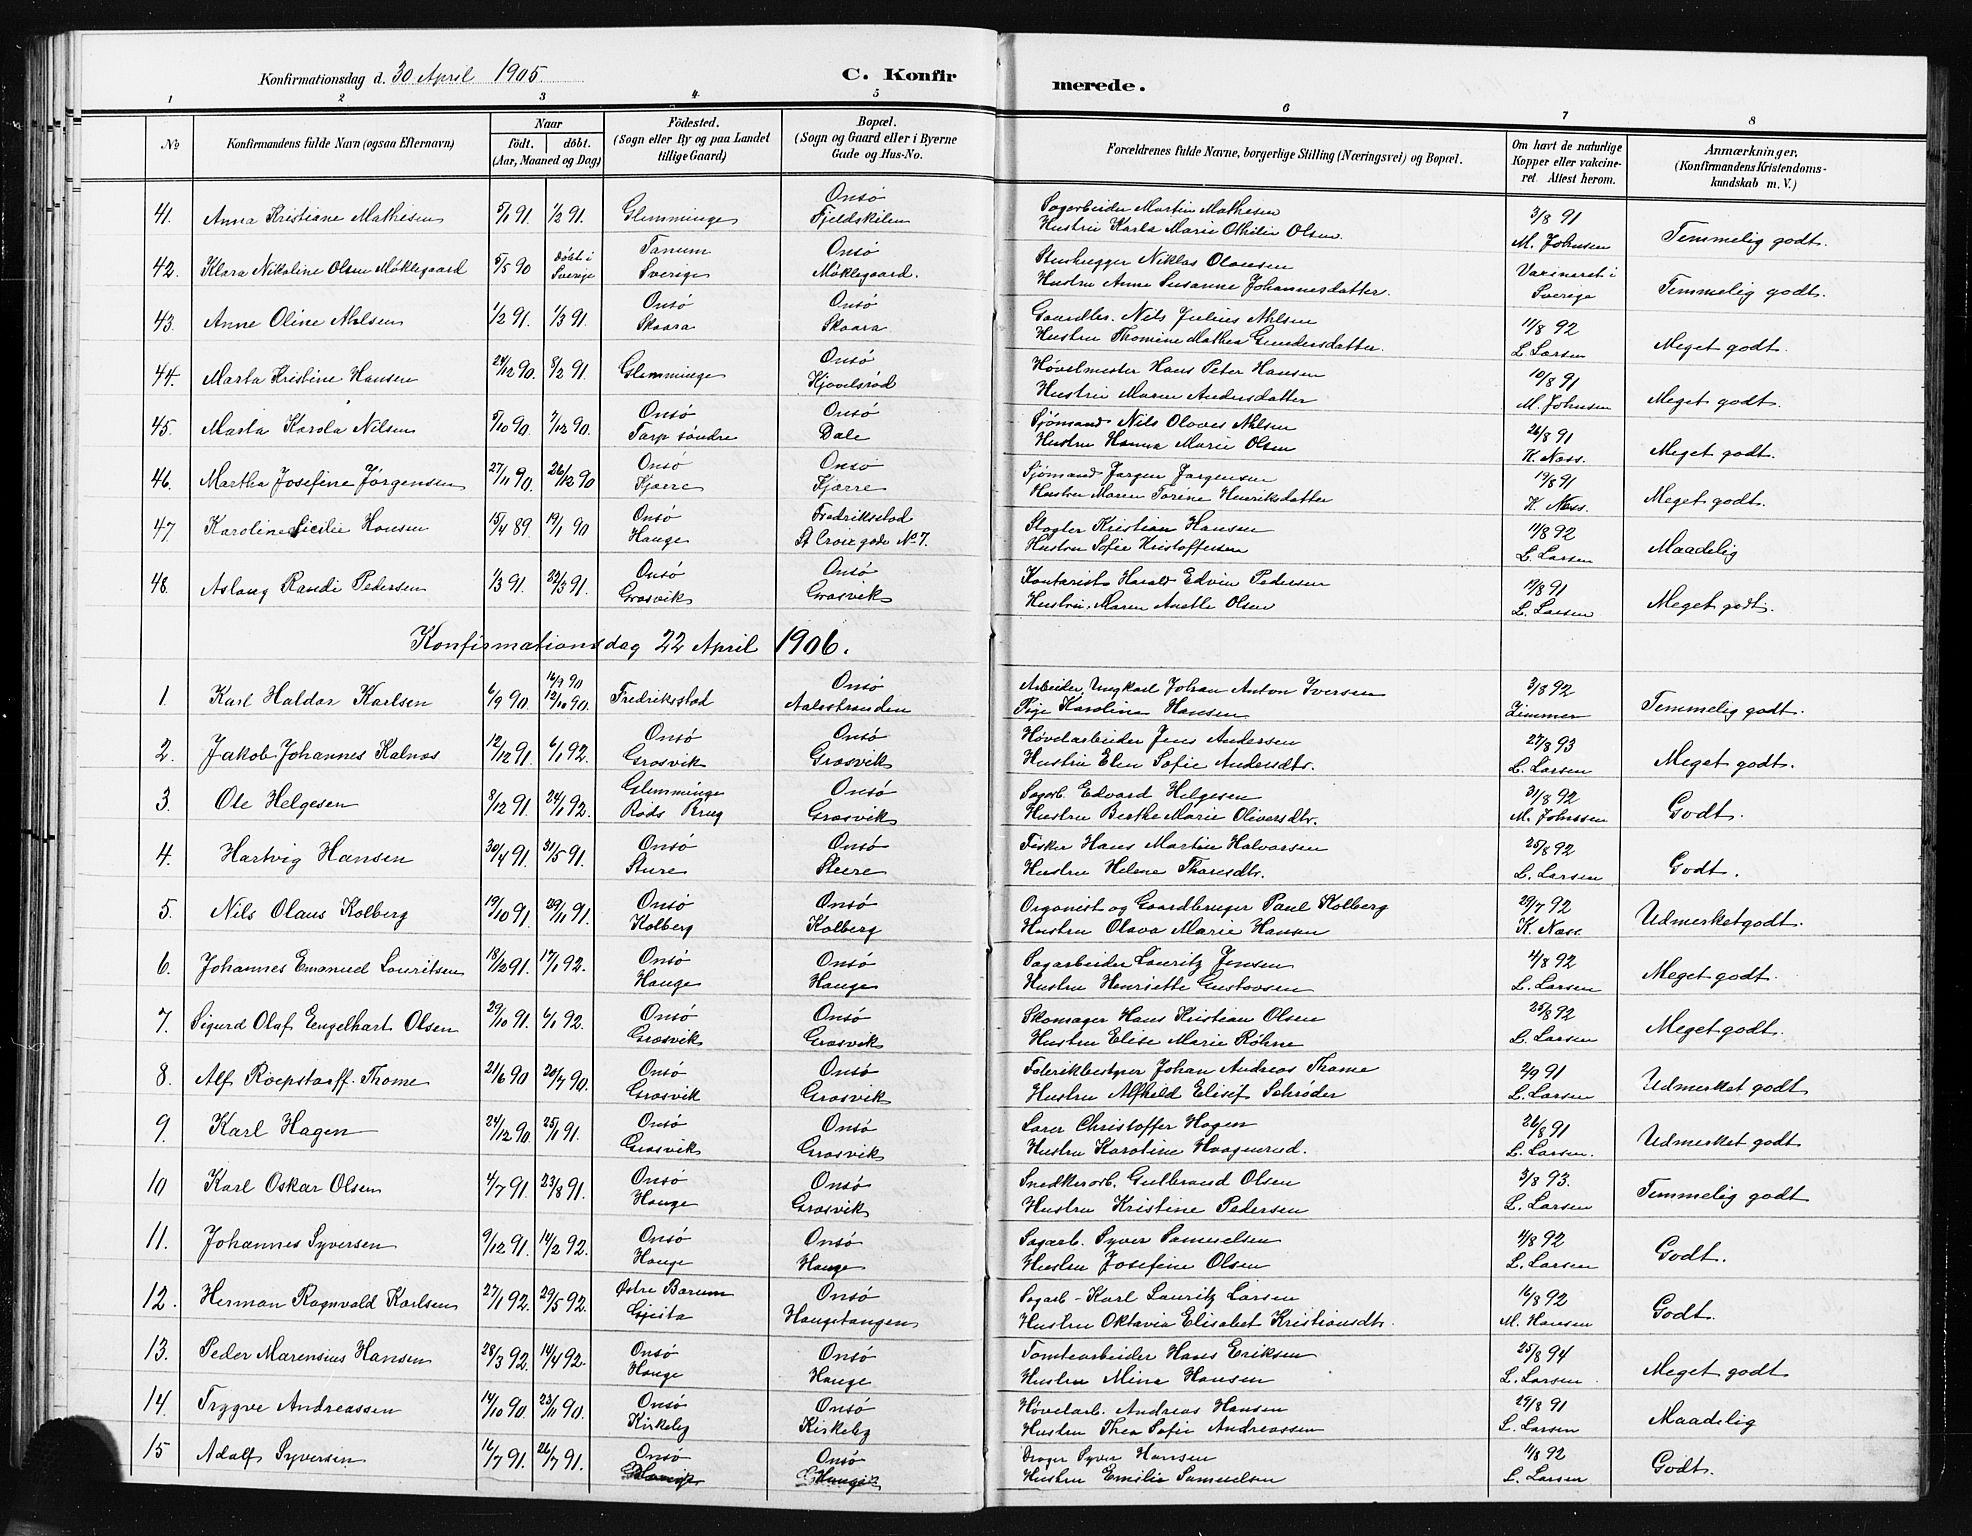 Konfirmationsdag d. 30 April 1905.
C. Konfirmerede.
1 2 3 4 5 6 7 8
No
Konfirmandens fulde Navn (ogsaa Efternavn)
Naar
født. døbt.
(Aar, Maaned og Dag)
Fødested.
(Sogn eller By og paa Landet
tillige Gaard)
Bopæl.
(Sogn og Gaard eller i Byerne
Gade og Hus-No.
Forældrenes fulde Navne, borgerlige Stilling (Næringsvei) og Bopæl.
Om havt de naturlige
Kopper eller vakcine-
ret. Attest herom.
Anmærkninger.
(Konfirmandens Kristendoms-
kundskab m. V.)
41. Anna Kristiane Mathisen 5/1 91. 1/2 91. Glemminge Onsø Fjeldskilen Sagarbeider Martin Mathesen Hustru Karla Marie Othilie Olsen. 3/8 91 M. Johnsen Temmelig godt.
42. Klara Nikoline Olsen Møklegaard 5/5 90 Døbt i Sverige Tanum Sverige Onsø Møklegaard. Stenhugger Niklas Olausen Hustru Anne Susanne Johannesdatter. Vaxineret i Sverige Temmelig godt.
43. Anne Oline Nilsen 1/2 91. 1/3 91. Onsø Skaara Onsø Skaara Gaardbr. Nils Julius Nilsen Hustru Thomine Mathea Gundersdatter. 11/8 92 L. Larsen Meget godt.
44. Marta Kristine Hansen 24/12 90. 8/2 91. Glemminge Onsø Kjovelsrød Høvelmester Hans Peter Hansen Hustru Maren Andersdatter 10/8 91 M. Johnsen Meget godt.
45. Marta Karola Nilsen 5/10 90. 7/12 90. Onsø Tarp søndre Onsø Dale Sjømand Nils Olaves Nilsen Hustru Hanna Marie Olsen 26/8 91 K. Næss. Meget godt.
46. Martha Josefine Jørgensen 27/11 90. 26/12 90 Onsø Kjærre Onsø Kjærre Sjømand Jørgen Jørgensen Hustru Maren Torine Henriksdatter 19/8 91 K. Næss. Meget godt.
47 Karoline Sicilie Hansen 15/4 89. 19/1 90 Onsø Hauge Fredriksstad St Croix gade No 7. Slagter Kristian Hansen Hustru Sofie Kristoffersen 11/8 92 L. Larsen Maadelig
48. Aslaug Randi Pedersen 1/3 91. 22/3 91. Onsø Græsvik Onsø Græsvik Kontorist Harald Edvin Pedersen Hustru. Maren Anette Olsen 19/8 91 L. Larsen Meget godt.
Konfirmationsdag 22 April 1906.
1 Karl Haldor Karlsen 6/9 90. 16/9 90 12/10 90. Fredriksstad Onsø Aalestranden Arbeider, Ungkarl Johan Anton Iversen Pige Karoline Hansen 3/8 92 Zimmer Temmelig godt.
2. Jakob Johannes Kalnæs 12/12 91. 6/1 92. Onsø Græsvik Onsø Græsvik Høvelarbeider Jens Andersen Hustru Elen Sofie Andersdtr. 27/8 93 L. Larsen Meget godt.
3. Ole Helgesen 8/12 91. 24/1 92. Glemminge Røds Brug Onsø Græsvik Sagarb. Edvard Helgesen Hustru Berthe Marie Oliversdtr. 31/8 92 M. Johnssen Godt.
4. Hartvig Hansen 30/4 91. 31/5 91. Onsø Sture Onsø Sture Fisker Hans Martin Halvorsen Hustru Helene Thoresdtr. 25/8 92 L. Larsen Godt.
5. Nils Olaus Kolberg 19/10 91. 29/11 91. Onsø Kolberg Onsø Kolberg Organist og Gaardbruger Paul Kolberg Hustru Olava Marie Hansen 29/7 92 K. Næss. Udmerket godt.
6. Johannes Emanuel Lauritsen 18/12 91. 17/1 92. Onsø Hauge Onsø Hauge Sagarbeider Lauritz Jensen Hustru Henriette Gustavsen 4/8 92 L. Larsen Meget godt.
7. Sigurd Olaf Engelhart Olsen 29/10 91. 6/1 92. Onsø Græsvik Onsø Græsvik Skomager Hans Kristian Olsen Hustru Elise Marie Røhne 25/8 92 L. Larsen Meget godt.
8. Alf Roepstorff-Thome 21/6 90 20/7 90. Onsø Græsvik Onsø Græsvik Fabrikbestyrer Johan Andreas Thome Hustru Alfhild Elisif Schrøder 2/9 91 L. Larsen Udmerket godt
9. Karl Hagen 24/12 90. 25/1 91. Onsø Græsvik Onsø Græsvik Lærer Christoffer Hagen Hustru Karoline Haagenrud. 26/8 91 L. Larsen. Udmerket godt
10 Karl Oskar Olsen 4/7 91. 23/8 91. Onsø Hauge Onsø Græsvik Snedkerarb. Gulbrand Olsen Hustru Kristine Pedersen 3/8 93. L. Larsen Temmelig godt
11. Johannes Syversen 9/12 91. 14/2 92. Onsø Hauge Onsø Hauge Sagarb. Syver Samuelsen Hustru Josefine Olsen 4/8 92 L. Larsen Godt.
12. Herman Ragnvald Karlsen 27/1 92. 29/5 92. Østre Bærum Onsø Haugetangen Sagarb- Karl Lauritz Larsen Hustru Oktavia Elisabet Kristiansdtr. 16/8 92 M. Hansen Godt.
13. Peder Marensius Hansen 28/3 92. 14/4 92. Onsø Hauge Onsø Hauge Tomtearbeider Hans Eriksen Hustru Mina Hansen 25/8 94 L. Larsen Meget godt
14. Trygve Andreassen 14/10 90. 23/11 90. Onsø Kirkeby Onsø Kirkeby Høvelarb. Andreas Hansen Hustru Thea Sofie Andreassen 29/8 91 L. Larsen Maadelig
15 Adolf Syversen 16/7 91. 26/7 91. Onsø Onsø Hauge Syver Hansen Hustru Emilie Samuelsen 11/8 92 L. Larsen Godt.